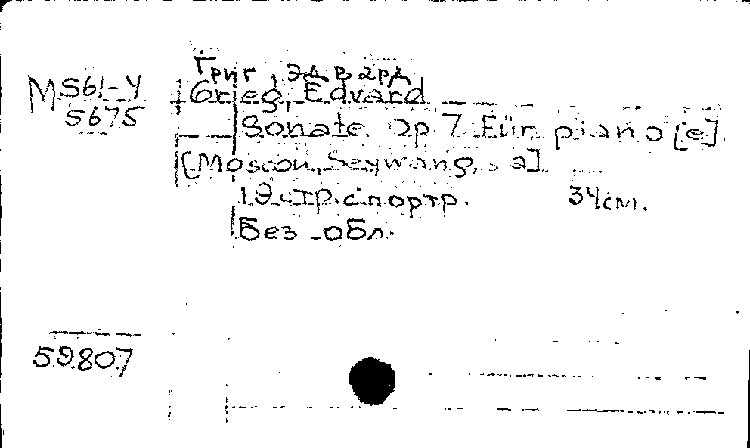 Григ, Эдвард
M561-У Grieg, Edvard
5675 Sonate. Op 7. Für piano[e]
[Moscou, Seywang, s a]
19 стр. с портр. 34 см.
Без обл.
59807